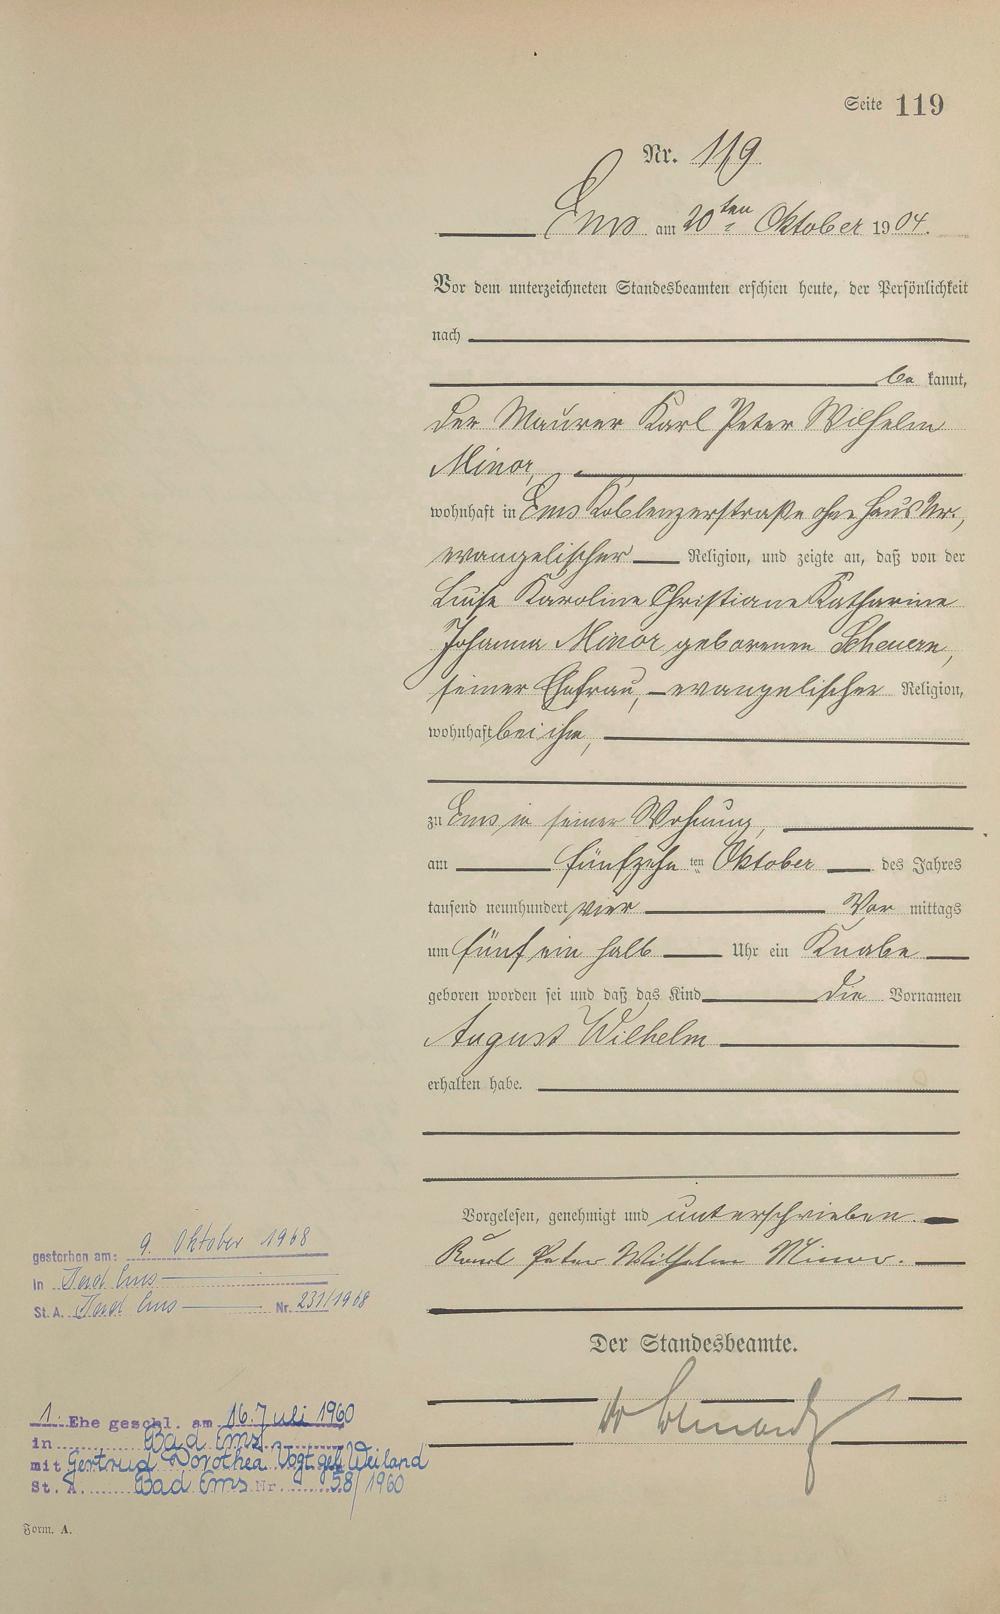 Seite 119
Nr. 119
Ems am 20ten Oktober 1904.
Vor dem unterzeichneten Standesbeamten erschien heute, der Persönlichkeit
nach
be kannt,
der Maurer Karl Peter Wilhelm
Minor,
wohnhaft in Ems Koblenzerstraße ohne Haus Nr.,
evangelischer Religion, und zeigte an, daß von der
Luise Karoline Christiane Katharine
Johanna Minor geborenen Scheuern,
seiner Ehefrau, evangelischer Religion,
wohnhaft bei ihm,
zu Ems in seiner Wohnung,
am fünfzehn ten Oktober des Jahres
tausend neunhundert vier Vor mittags
um fünf ein halb Uhr ein Knabe
geboren worden sei und daß das Kind die Vornamen
August Wilhelm
erhalten habe.
Vorgelesen, genehmigt und unterschrieben.
Karl Peter Wilhelm Minor.
Der Standesbeamte.
gestorben am: 9. Oktober 1968
in Bad Ems
St. A. Bad Ems Nr. 231/1968
1. Ehe geschl. am 16. Juli 1960
in Bad Ems
mit Gertrud Dorothea Vogt geb. Weiland
St. A. Bad Ems Nr. 58/1960
Form. A.